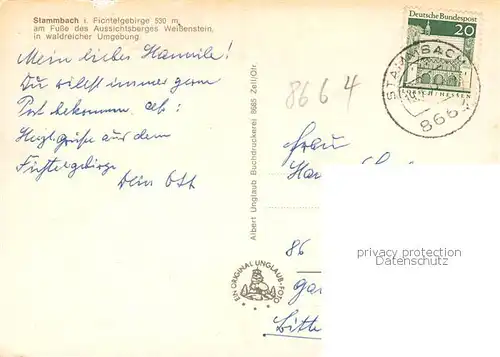 Stammbach i. Fichtelgebirge 530 m,
am Fuße des Aussichtsberges Weißenstein,
in waldreicher Umgebung
Mein liebes Hannile!
Du willst immer gern
Post bekommen. also:
Herzl. Grüße aus dem
Fichtelgebirge
Dein Ott
Albert Unglaub Buchdruckerei 8665 Zell/Ofr.
EIN ORIGINAL UNGLAUB-FOTO
8664
Deutsche Bundespost
20
LORSCH/HESSEN
STAMMBACH
8664
Frau
Han
86
privacy protection
Datenschutz
gar
Bitte